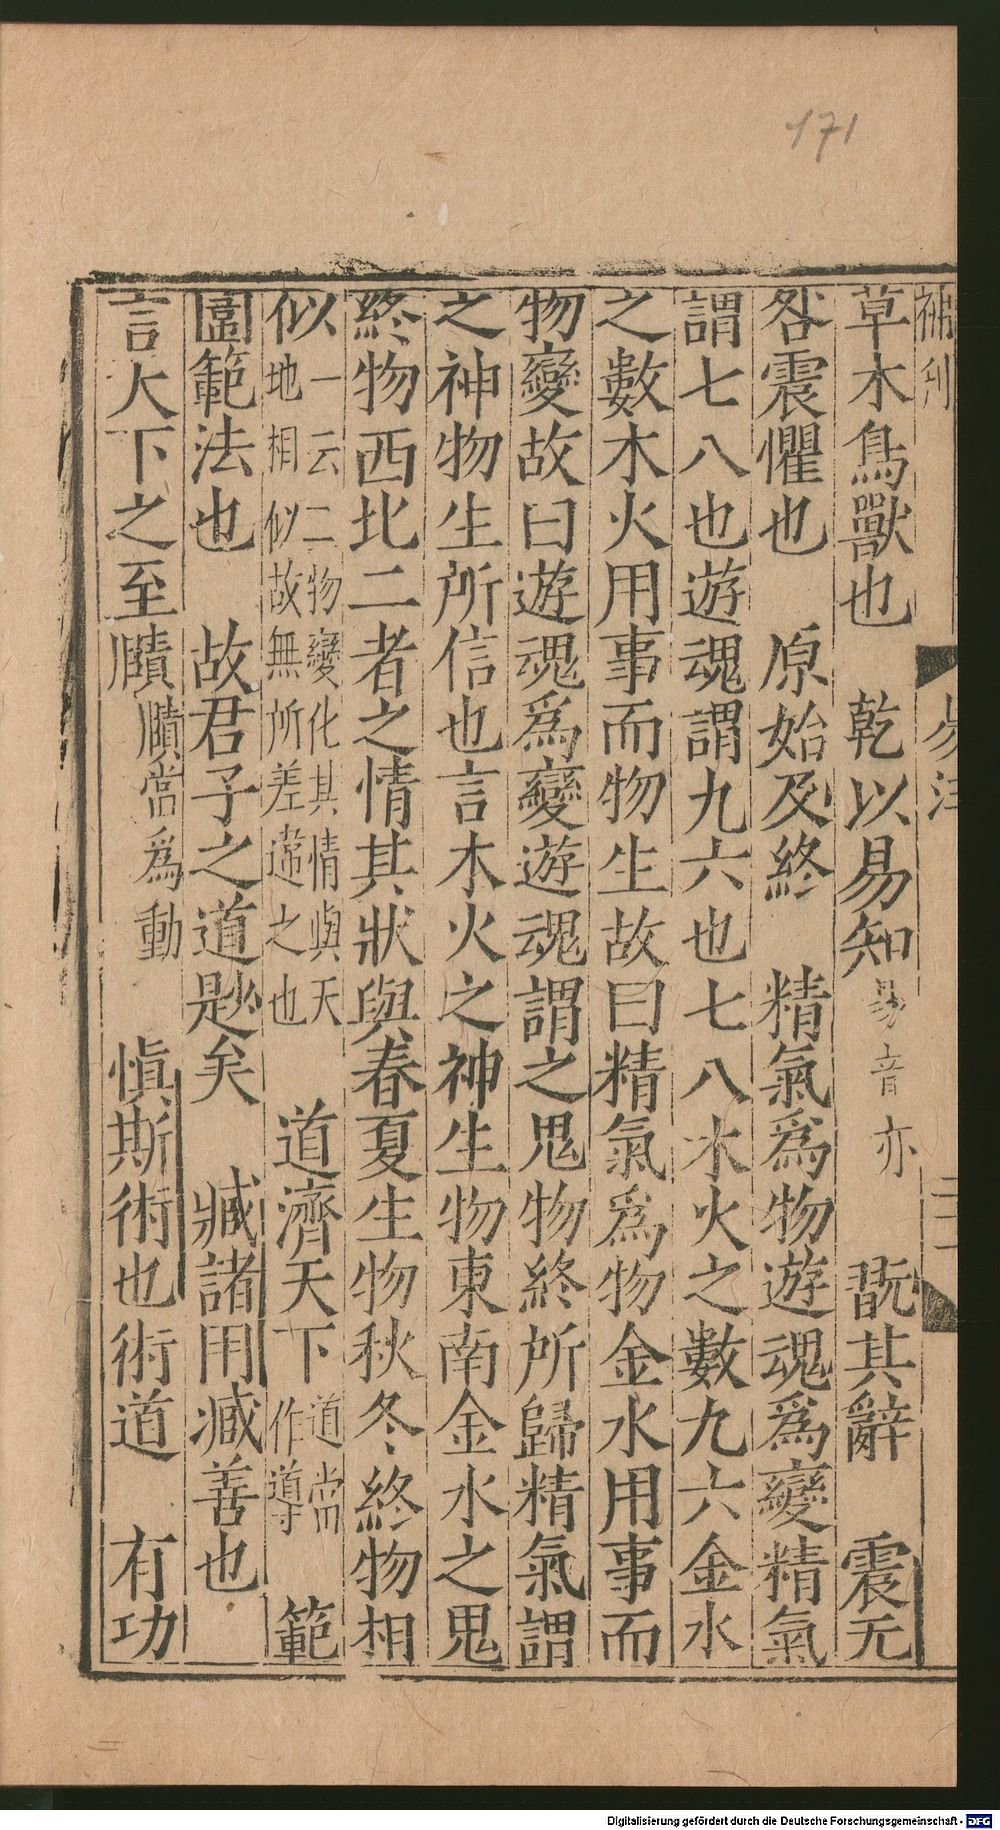 171
補刋
易注
二十
草木鳥獸也　乾以易知易音亦　翫其辭　震无
咎震懼也　原始及終　精氣爲物遊魂爲變精氣
謂七八也遊魂謂九六也七八木火之數九六金水
之數木火用事而物生故曰精氣爲物金水用事而
物變故曰遊魂爲變遊魂謂之鬼物終所歸精氣謂
之神物生所信也言木火之神生物東南金水之鬼
終物西北二者之情其狀與春夏生物秋冬終物相
似一云二物變化其情與天地相似故無所差違之也　道濟天下道當作導　範
圍範法也　故君子之道尟矣　臧諸用臧善也
言天下之至賾賾當爲動　愼斯術也術道　有功
Digitalisierung gefördert durch die Deutsche Forschungsgemeinschaft - DFG